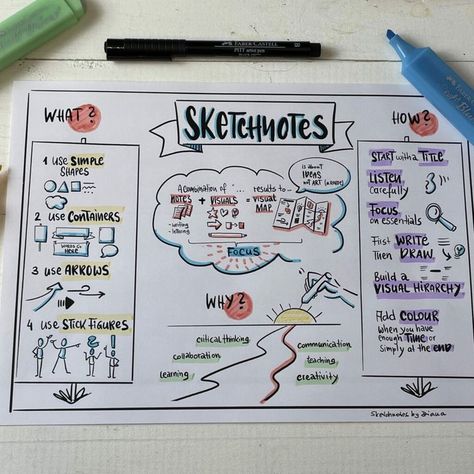 FABER-CASTELL
PITT artist pen
B
SKETCHNOTES
WHAT?
1 use SIMPLE
SHAPES
2 use CONTAINERS
WORDS GO
HERE
3 use ARROWS
4 use STICK FIGURES
A combination of ... results to...
NOTES + VISUALS = VISUAL
MAP
- writing
- lettering
FOCUS
is about
IDEAS
NOT ART
WHY?
critical thinking
collaboration
learning
communication
teaching
creativity
HOW?
START with a TITLE
LISTEN
carefully
FOCUS
on essentials
First WRITE
Then DRAW
Build a
VISUAL HIRARCHY
Add COLOUR
when you have
enough TIME or
simply at the END
Sketchnotes by Diana